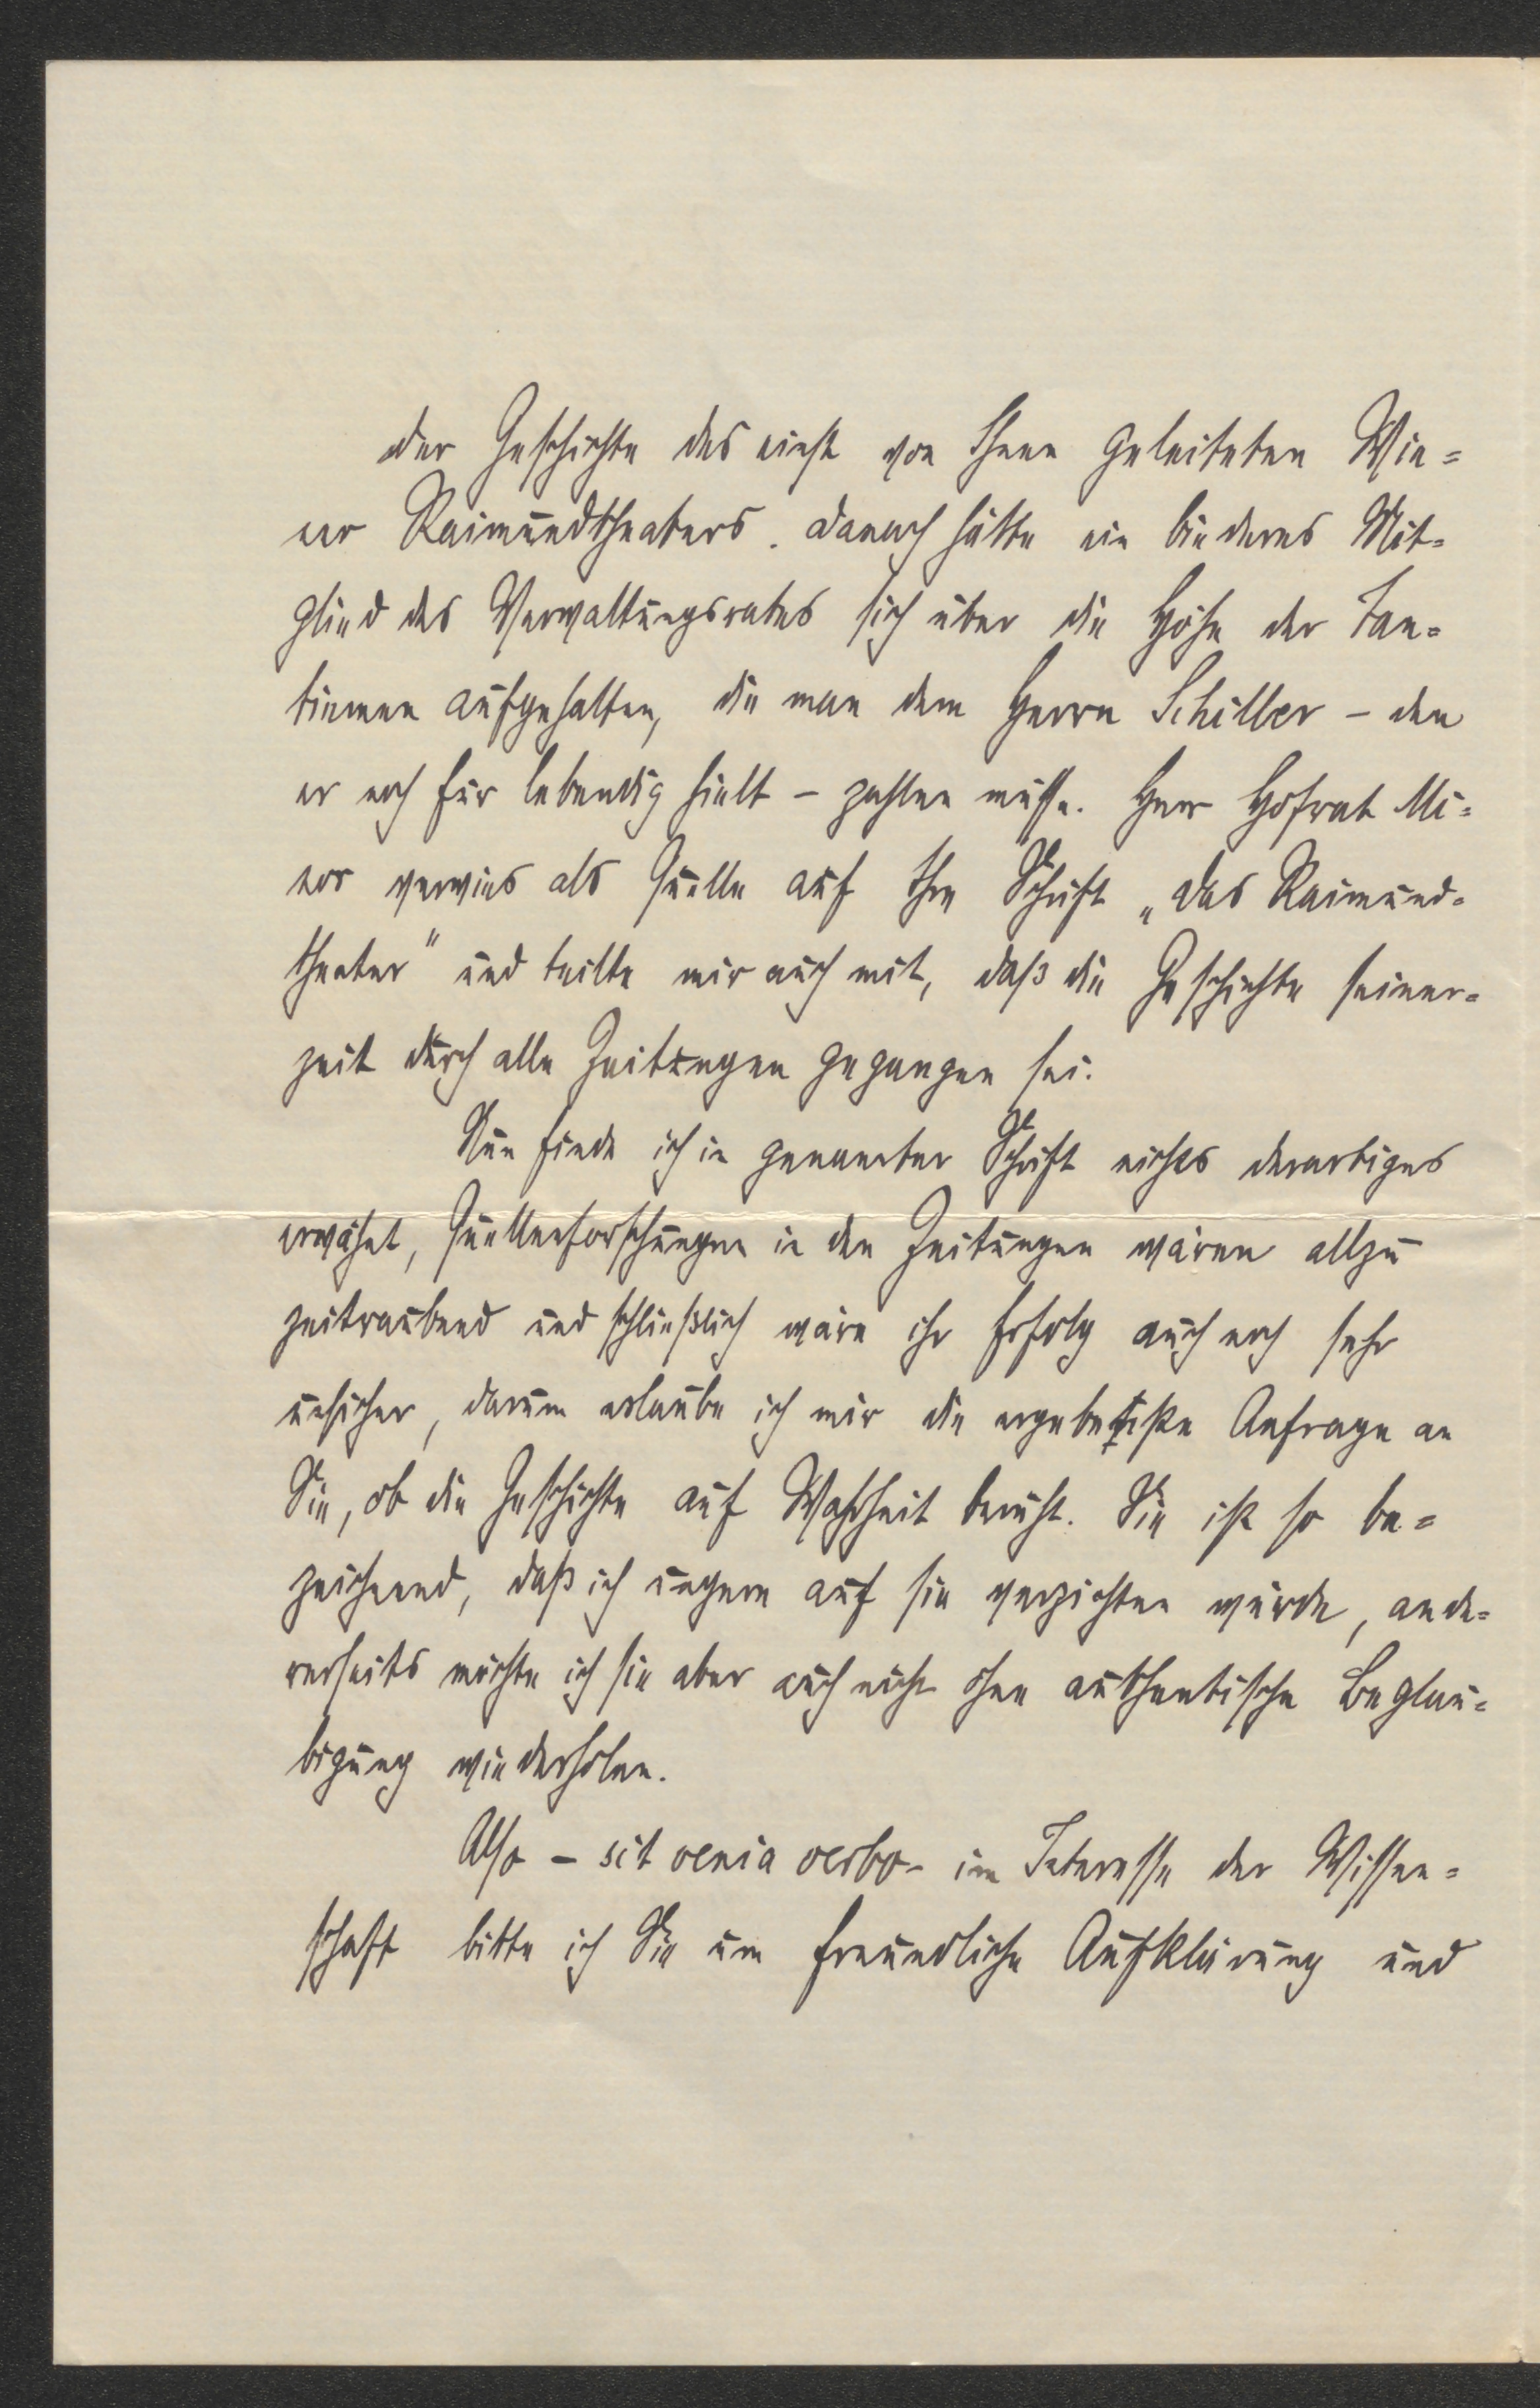 der Geschichte des einst von Ihnen geleiteten Wie=
ner Raimundtheaters. Danach hätte ein biederes Mit=
glied des Verwaltungsrates sich über die Höhe der Tan=
tiemen aufgehalten, die man dem Herrn Schiller – den
er noch für lebendig hielt – zahlen müsse. Herr Hofrat Mi=
nor verwies als Quelle auf Ihre Schrift „Das Raimund=
theater" und teilte mir auch mit, daß die Geschichte seiner=
zeit durch alle Zeitungen gegangen sei.
Nun finde ich in genannter Schrift nichts derartiges
erwähnt, Quellenforschungen in den Zeitungen wären allzu
zeitraubend und schließlich wäre ihr Erfolg auch noch sehr
unsicher, darum erlaube ich mir die ergebenste Anfrage an
Sie, ob die Geschichte auf Wahrheit beruht. Sie ist so be=
zeichnend, daß ich ungern auf sie verzichten würde, ande=
rerseits möchte ich sie aber auch nicht ohne authentische Beglau=
bigung wiederholen.
Also – sit venia verbo – im Interesse der Wissen=
schaft bitte ich Sie um freundliche Aufklärung und